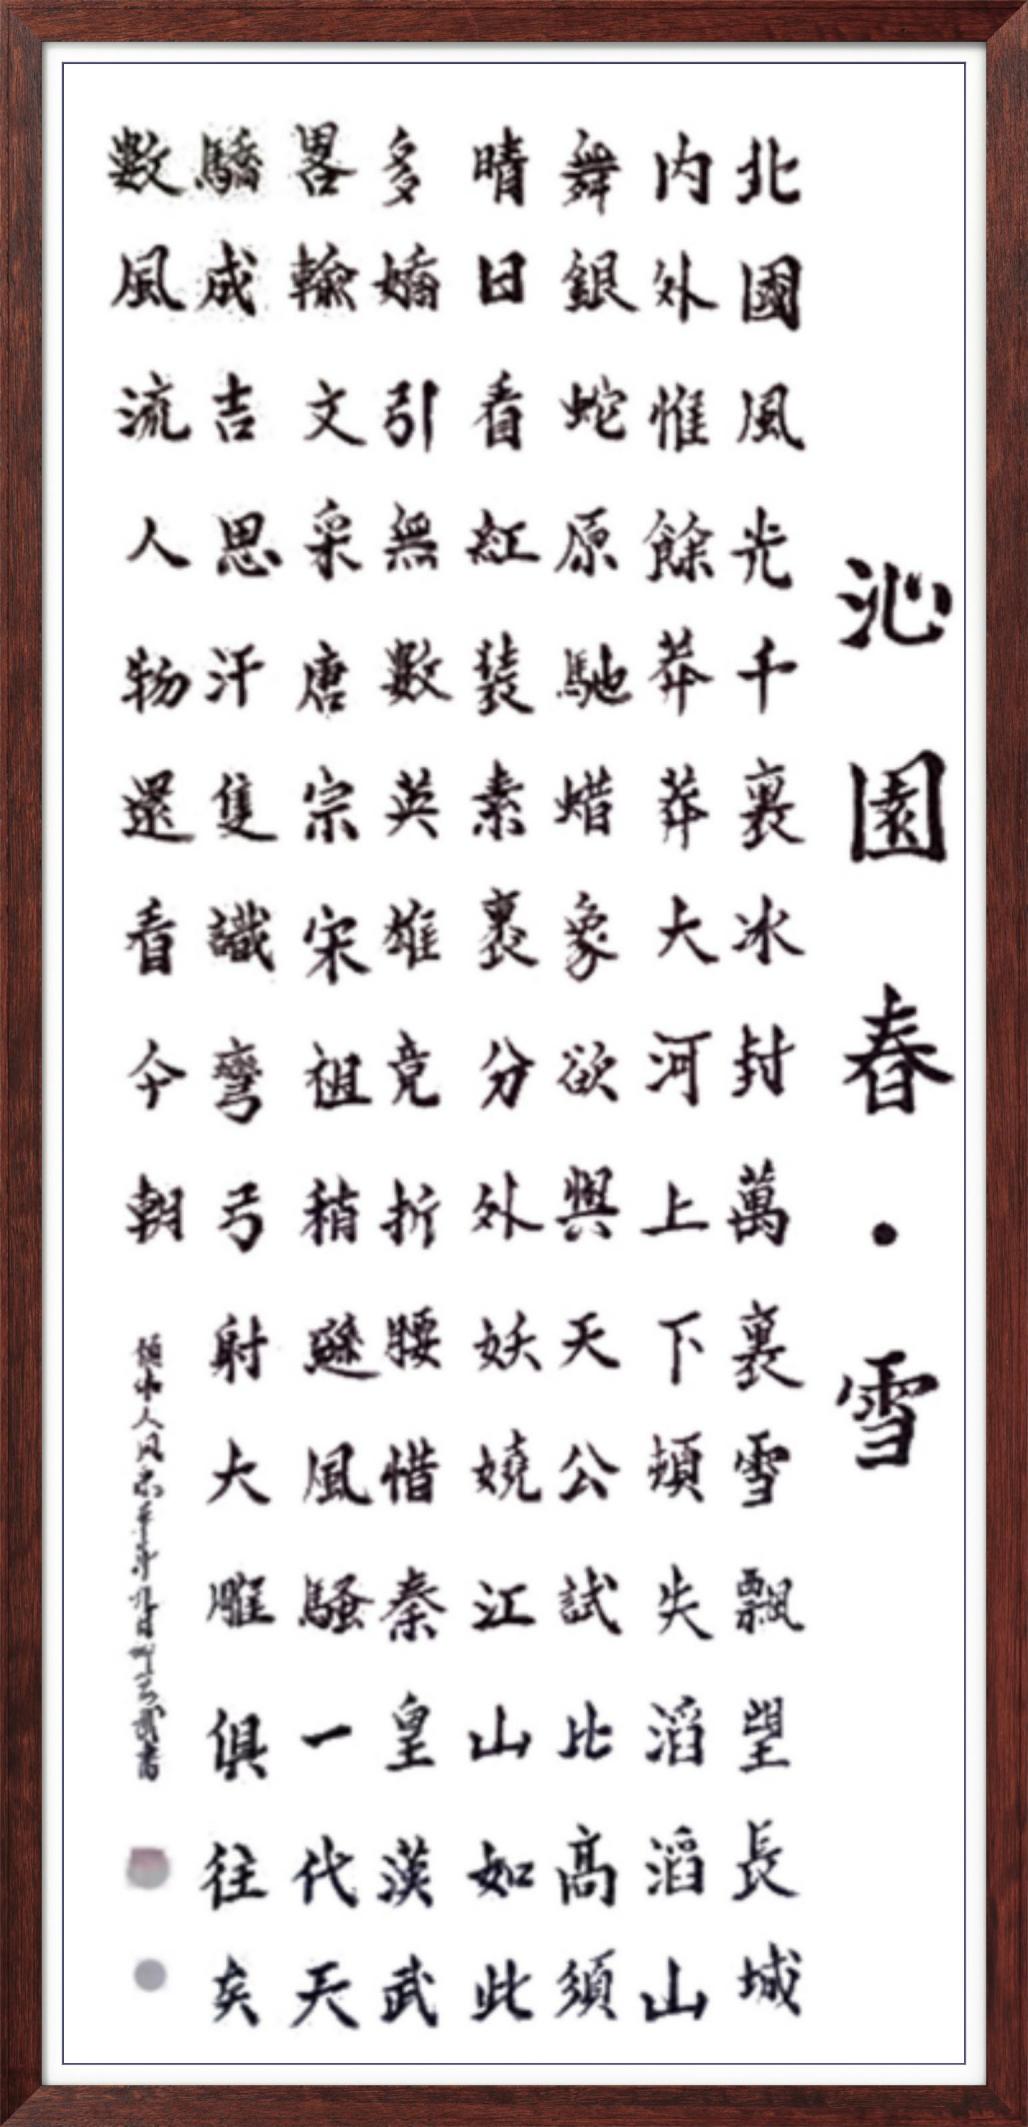 沁園春·雪
北國風光千裏冰封萬裏雪飄望長城
内外惟餘莽莽大河上下頓失滔滔山
舞銀蛇原馳蜡象欲與天公試比高須
晴日看紅裝素裹分外妖嬈江山如此
多嬌引無數英雄竞折腰惜秦皇漢武
畧輸文采唐宗宋祖稍遜風騷一代天
驕成吉思汗隻識彎弓射大雕俱往矣
數風流人物還看今朝